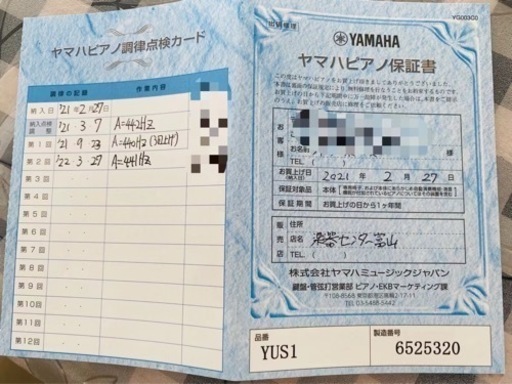 ヤマハピアノ調律点検カード
調律の記録
作業内容
納入日 '21年2月27日
納入点検調整 '21・3・7 A=442Hz
第1回 '21・9・23 A=440Hz(3回上げ)
第2回 '22・3・27 A=441Hz
第3回
第4回
第5回
第6回
第7回
第8回
第9回
第10回
第11回
第12回
YAMAHA
ヤマハピアノ保証書
お客様
TEL. ( )
お買上げ日(納入日) 2021年2月27日
保証対象品 本体
保証期間 お買上げの日から1ヶ年間
販売店
住所
店名
TEL. ( )
株式会社ヤマハミュージックジャパン
鍵盤・管弦打営業部 ピアノ・EKBマーケティング課
〒108-8568 東京都港区高輪2-17-11
TEL. 03-5488-5442
品番
YUS1
製造番号
6525320